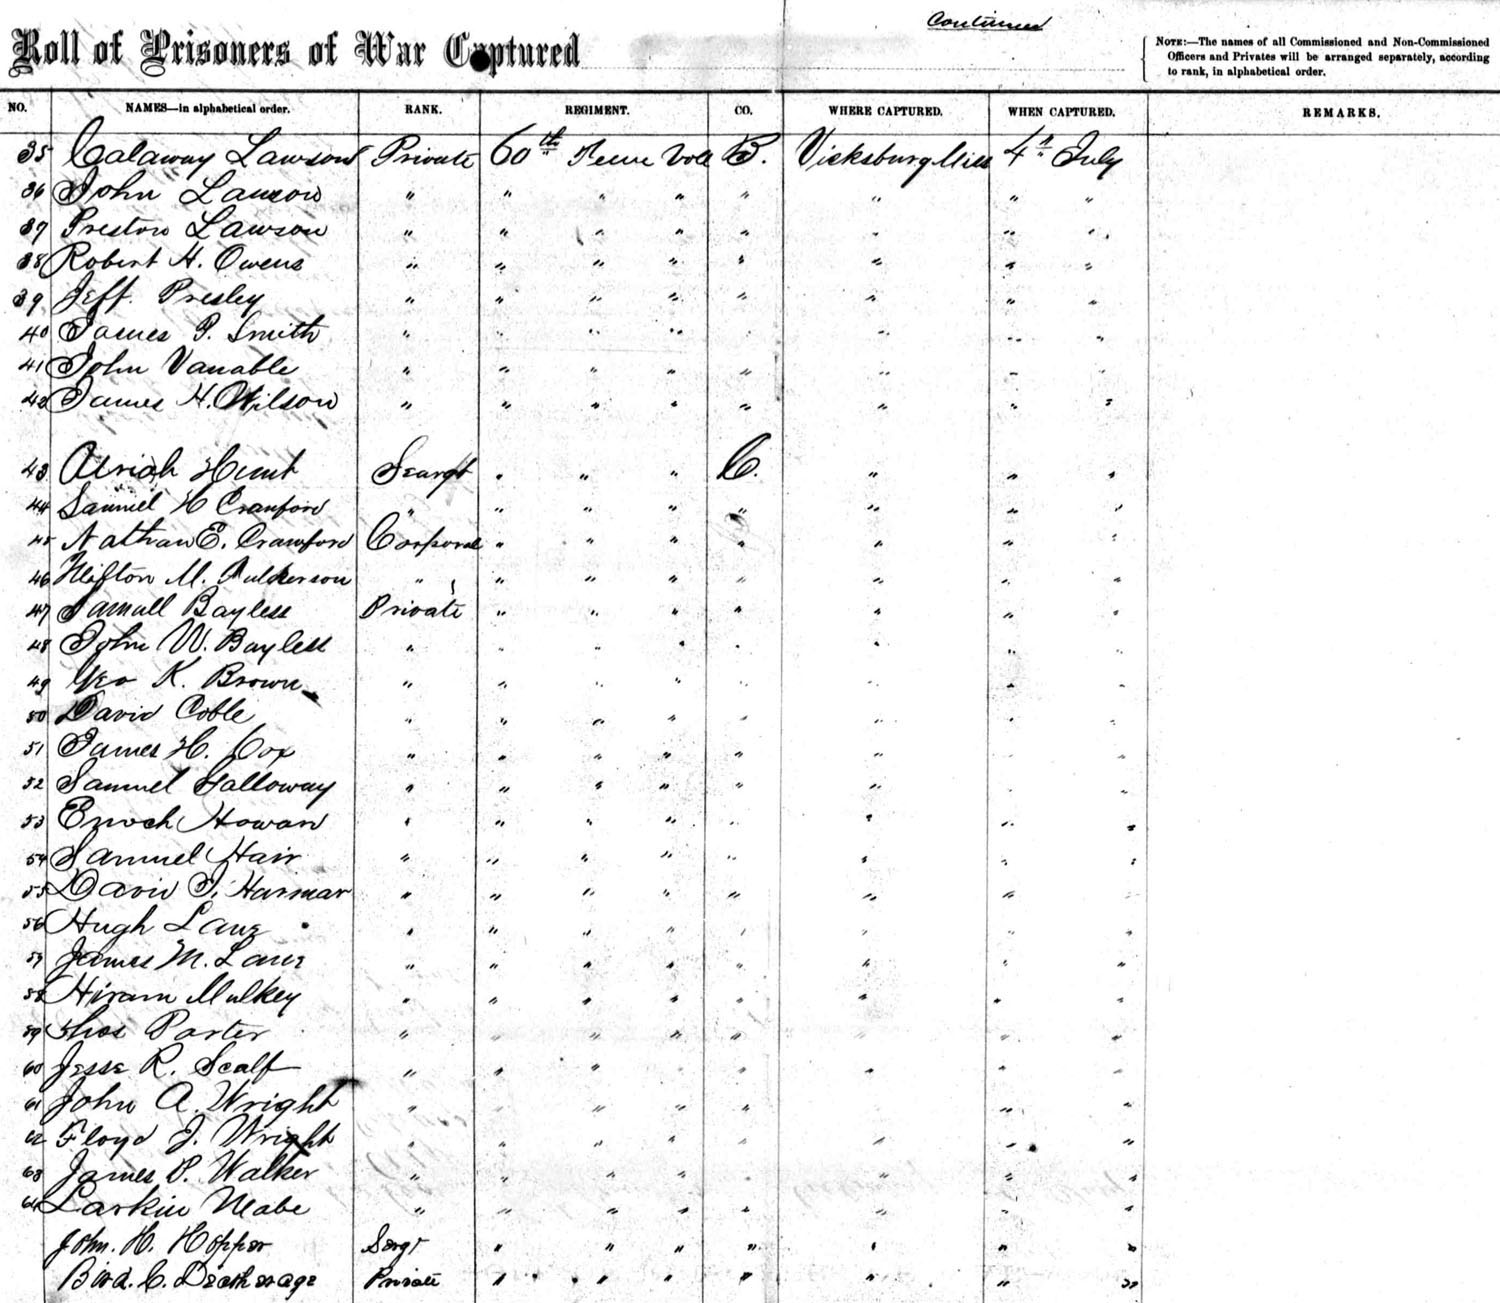 Continued
Roll of Prisoners of War Captured
NOTE:—The names of all Commissioned and Non-Commissioned
Officers and Privates will be arranged separately, according
to rank, in alphabetical order.
NO. NAMES—in alphabetical order. RANK. REGIMENT. CO. WHERE CAPTURED. WHEN CAPTURED. REMARKS.
35 Calaway Lawson Private 60th Tenn Vols B. Vicksburg Miss 4th July
36 John Lawson " " " " " " " "
37 Preston Lawson " " " " " " " "
38 Robert H. Owens " " " " " " " "
39 Jeff. Presley " " " " " " " "
40 James P. Smith " " " " " " " "
41 John Vanable " " " " " " " "
42 James H. Wilson " " " " " " " "
43 Hunt Seargt " " " C. " " "
44 Samuel H Crawford " " " " " " " "
45 Nathan E. Crawford Corporal " " " " " " "
46 M. Fulkerson " " " " " " " "
47 Samuel Bayless Private " " " " " " "
48 John W. Bayless " " " " " " " "
49 Geo K. Brown " " " " " " " "
50 David Coble " " " " " " " "
51 James H. Cox " " " " " " " "
52 Samuel Galloway " " " " " " " "
53 Enoch " " " " " " " "
54 Samuel Hair " " " " " " " "
55 David Harman " " " " " " " "
56 Hugh Lane " " " " " " " "
57 James M. Lane " " " " " " " "
58 Hiram Mulkey " " " " " " " "
59 Thos Porter " " " " " " " "
60 Jesse R. Scalf " " " " " " " "
61 John A. Wright " " " " " " " "
62 Floyd J. Wright " " " " " " " "
63 James P. Walker " " " " " " " "
64 Larkin Mabe " " " " " " " "
John. H. Hopper Sergt " " " " " " "
C. Private " " " " " " "